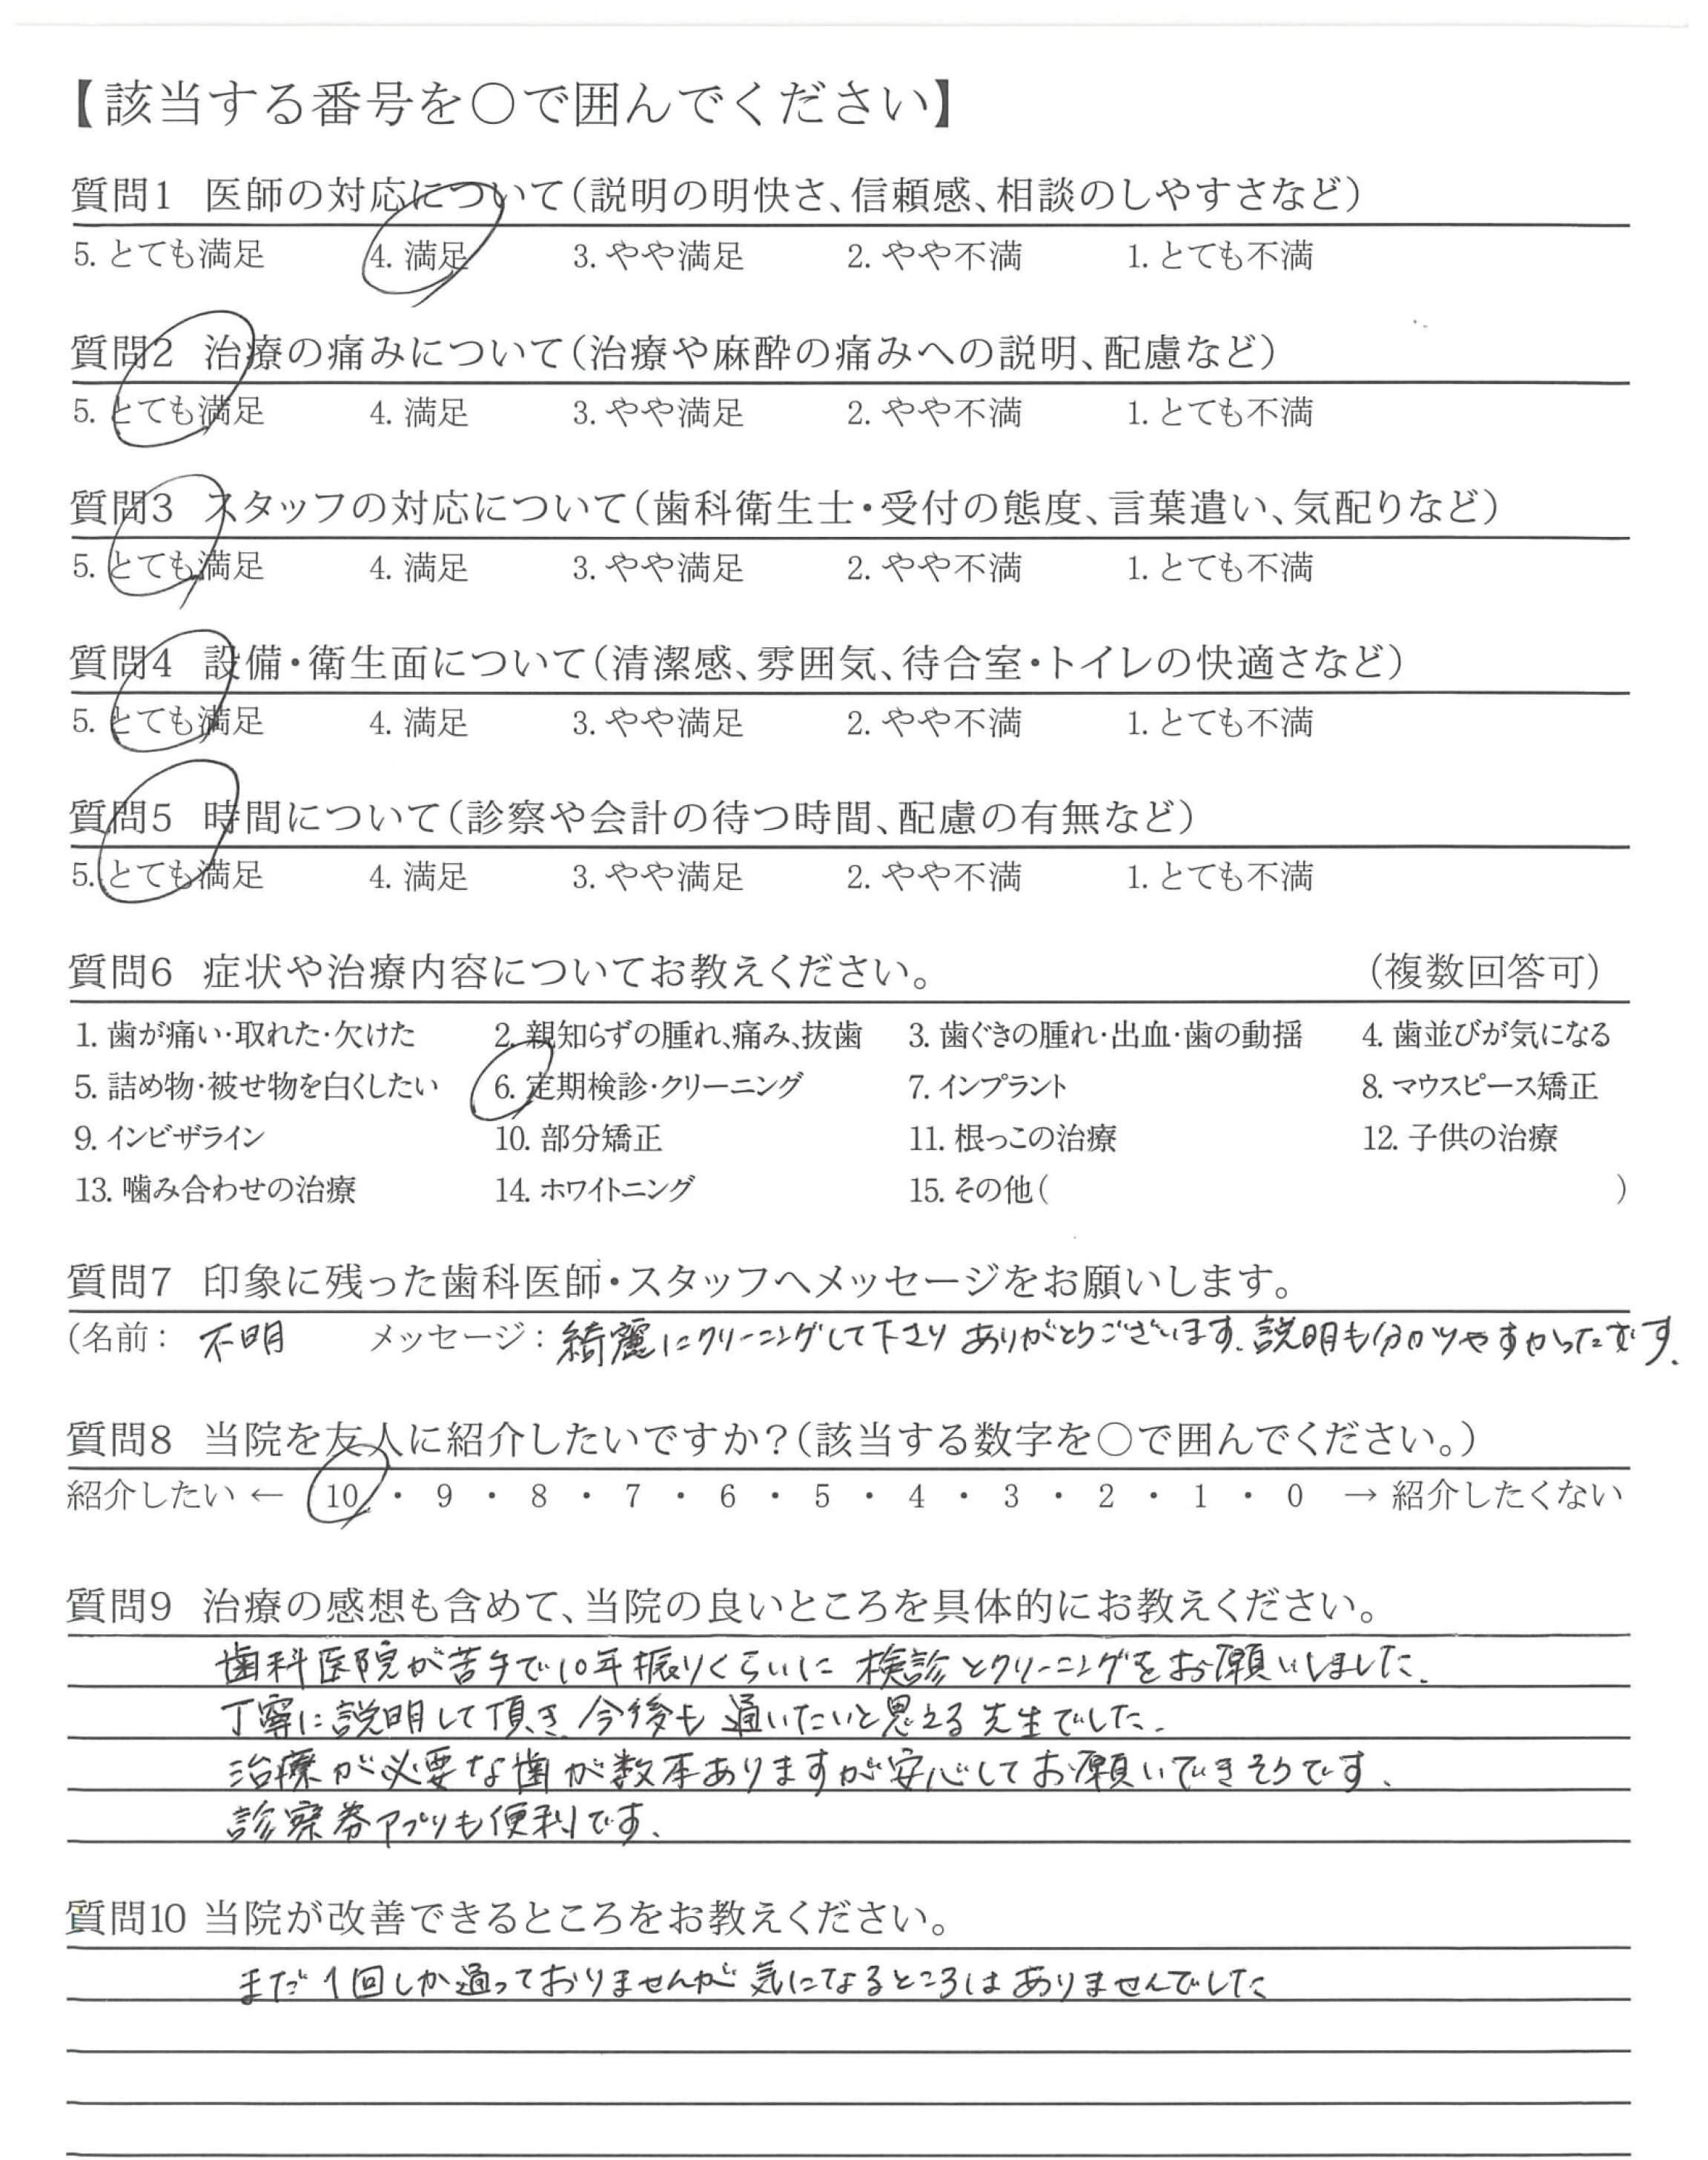 【該当する番号を〇で囲んでください】
質問1 医師の対応について(説明の明快さ、信頼感、相談のしやすさなど)
5. とても満足 4. 満足 3. やや満足 2. やや不満 1. とても不満
質問2 治療の痛みについて(治療や麻酔の痛みへの説明、配慮など)
5. とても満足 4. 満足 3. やや満足 2. やや不満 1. とても不満
質問3 スタッフの対応について(歯科衛生士・受付の態度、言葉遣い、気配りなど)
5. とても満足 4. 満足 3. やや満足 2. やや不満 1. とても不満
質問4 設備・衛生面について(清潔感、雰囲気、待合室・トイレの快適さなど)
5. とても満足 4. 満足 3. やや満足 2. やや不満 1. とても不満
質問5 時間について(診察や会計の待つ時間、配慮の有無など)
5. とても満足 4. 満足 3. やや満足 2. やや不満 1. とても不満
質問6 症状や治療内容についてお教えください。 (複数回答可)
1. 歯が痛い・取れた・欠けた 2. 親知らずの腫れ、痛み、抜歯 3. 歯ぐきの腫れ・出血・歯の動揺 4. 歯並びが気になる
5. 詰め物・被せ物を白くしたい 6. 定期検診・クリーニング 7. インプラント 8. マウスピース矯正
9. インビザライン 10. 部分矯正 11. 根っこの治療 12. 子供の治療
13. 噛み合わせの治療 14. ホワイトニング 15. その他( )
質問7 印象に残った歯科医師・スタッフへメッセージをお願いします。
(名前: 不明 メッセージ: 綺麗にクリーニングして下さり ありがとうございます。説明も分かりやすかったです。
質問8 当院を友人に紹介したいですか?(該当する数字を〇で囲んでください。)
紹介したい ← 10 ・ 9 ・ 8 ・ 7 ・ 6 ・ 5 ・ 4 ・ 3 ・ 2 ・ 1 ・ 0 → 紹介したくない
質問9 治療の感想も含めて、当院の良いところを具体的にお教えください。
歯科医院が苦手で10年振りくらいに 検診とクリーニングをお願いしました。
丁寧に説明して頂き、今後も 通いたいと思える先生でした。
治療が必要な歯が数本ありますが安心してお願いできそうです。
診察券アプリも便利です。
質問10 当院が改善できるところをお教えください。
まだ1回しか通っておりませんが 気になるところはありませんでした